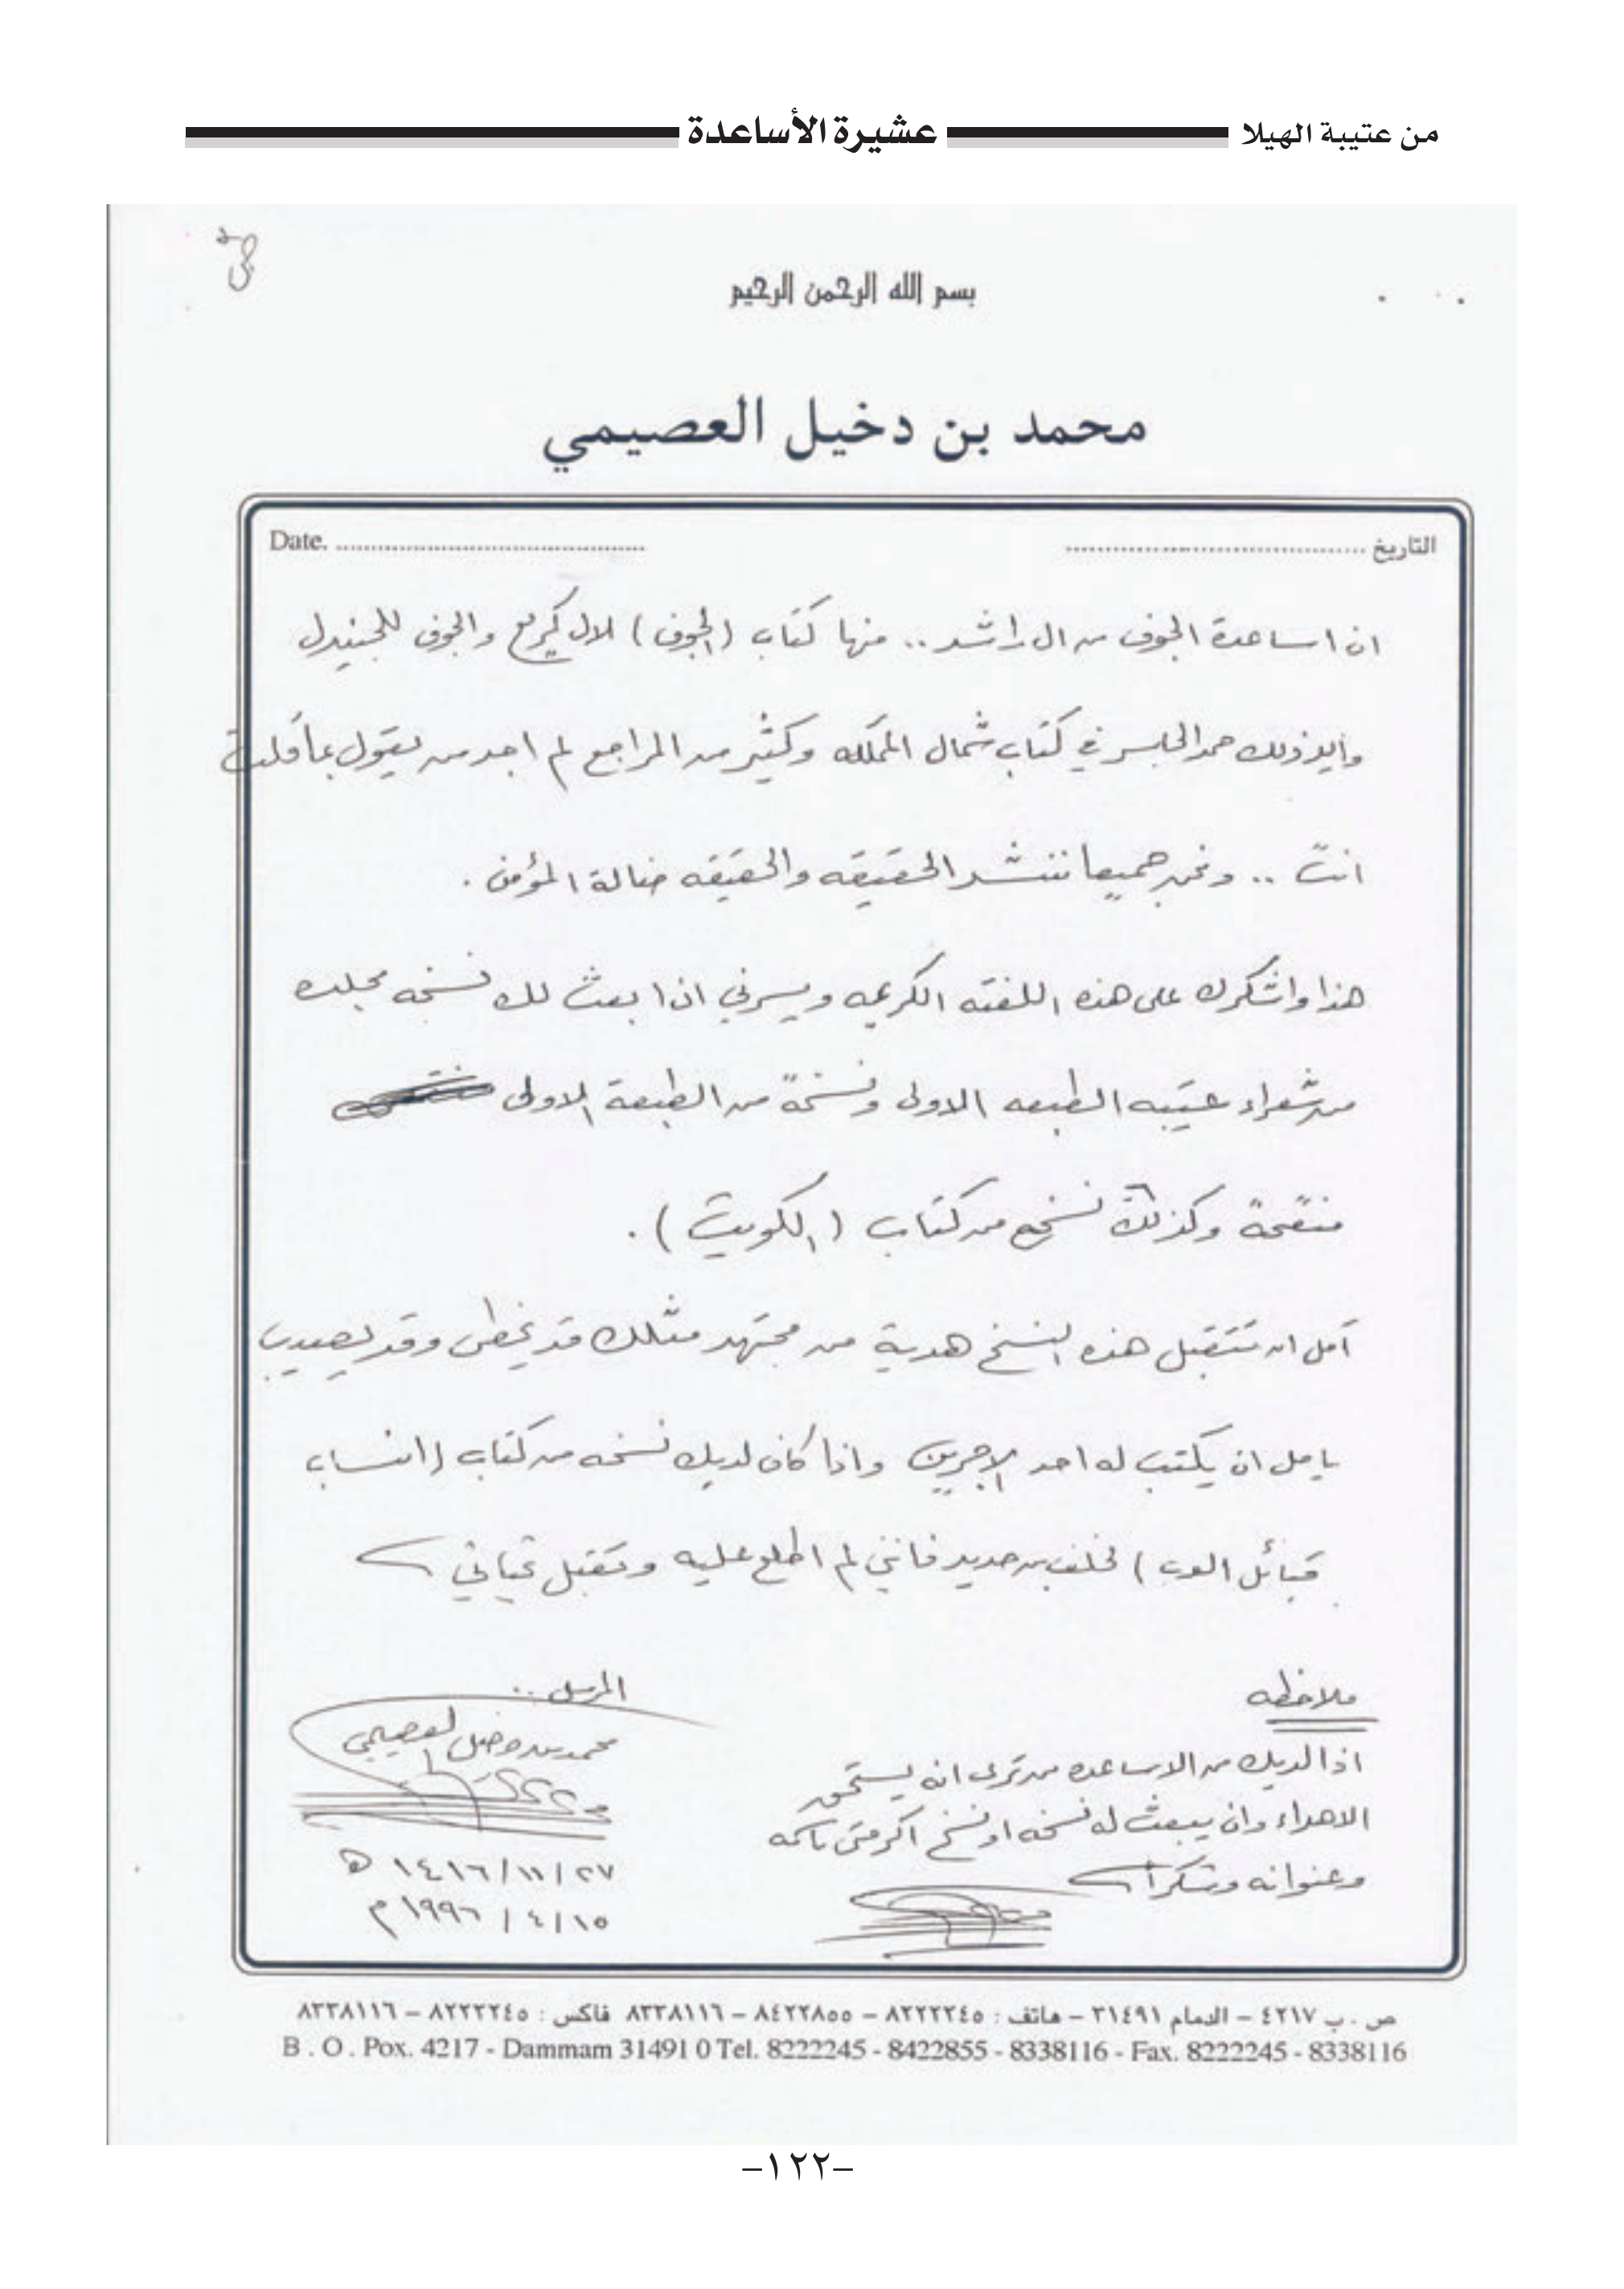 من عتيبة الهيلا عشيرة الأساعدة
بسم الله الرحمن الرحيم
محمد بن دخيل العصيمي
التاريخ ........................ Date. ........................
ان اساعدة الجوف من ال راشد .. منها كتاب (الجوف) لال كريع والجوف للجنيدل
وأيد ذلك حمد الجاسر في كتاب شمال المملكه وكثير من المراجع لم اجد من يقول بما قلت
انت .. ونحن جميعا ننشد الحقيقه والحقيقه ضالة المؤمن .
هذا واشكرك على هذه اللفته الكريمه ويسرني ان ابعث لك نسخه مجلده
من شعراء عتيبه الطبعه الاولى ونسخة من الطبعة الاولى
منقحة وكذلك نسخه من كتاب (الكويت) .
آمل ان تتقبل هذه النسخ هدية من مجتهد مثلك قد يخطئ وقد يصيب
يامل ان يكتب له احد الاجرين واذا كان لديك نسخه من كتاب (انساب
قبائل العرب) لخلف بن حديد فانني لم اطلع عليه وتقبل تحياتي
ملاحظه
اذا لديك من الاساعده من ترى انه يستحق
الاهداء وان يبعث له نسخه او نسخ اكرمني باسمه
وعنوانه وشكراً
المرسل ..
محمد بن دخيل العصيمي
٢٧ / ١١ / ١٤١٦ هـ
١٥ / ٤ / ١٩٩٦ م
ص . ب ٤٢١٧ – الدمام ٣١٤٩١ – هاتف : ٨٢٢٢٢٤٥ – ٨٤٢٢٨٥٥ – ٨٣٣٨١١٦ فاكس : ٨٢٢٢٢٤٥ – ٨٣٣٨١١٦
B . O . Pox. 4217 - Dammam 31491 0 Tel. 8222245 - 8422855 - 8338116 - Fax. 8222245 - 8338116
–١٢٢–